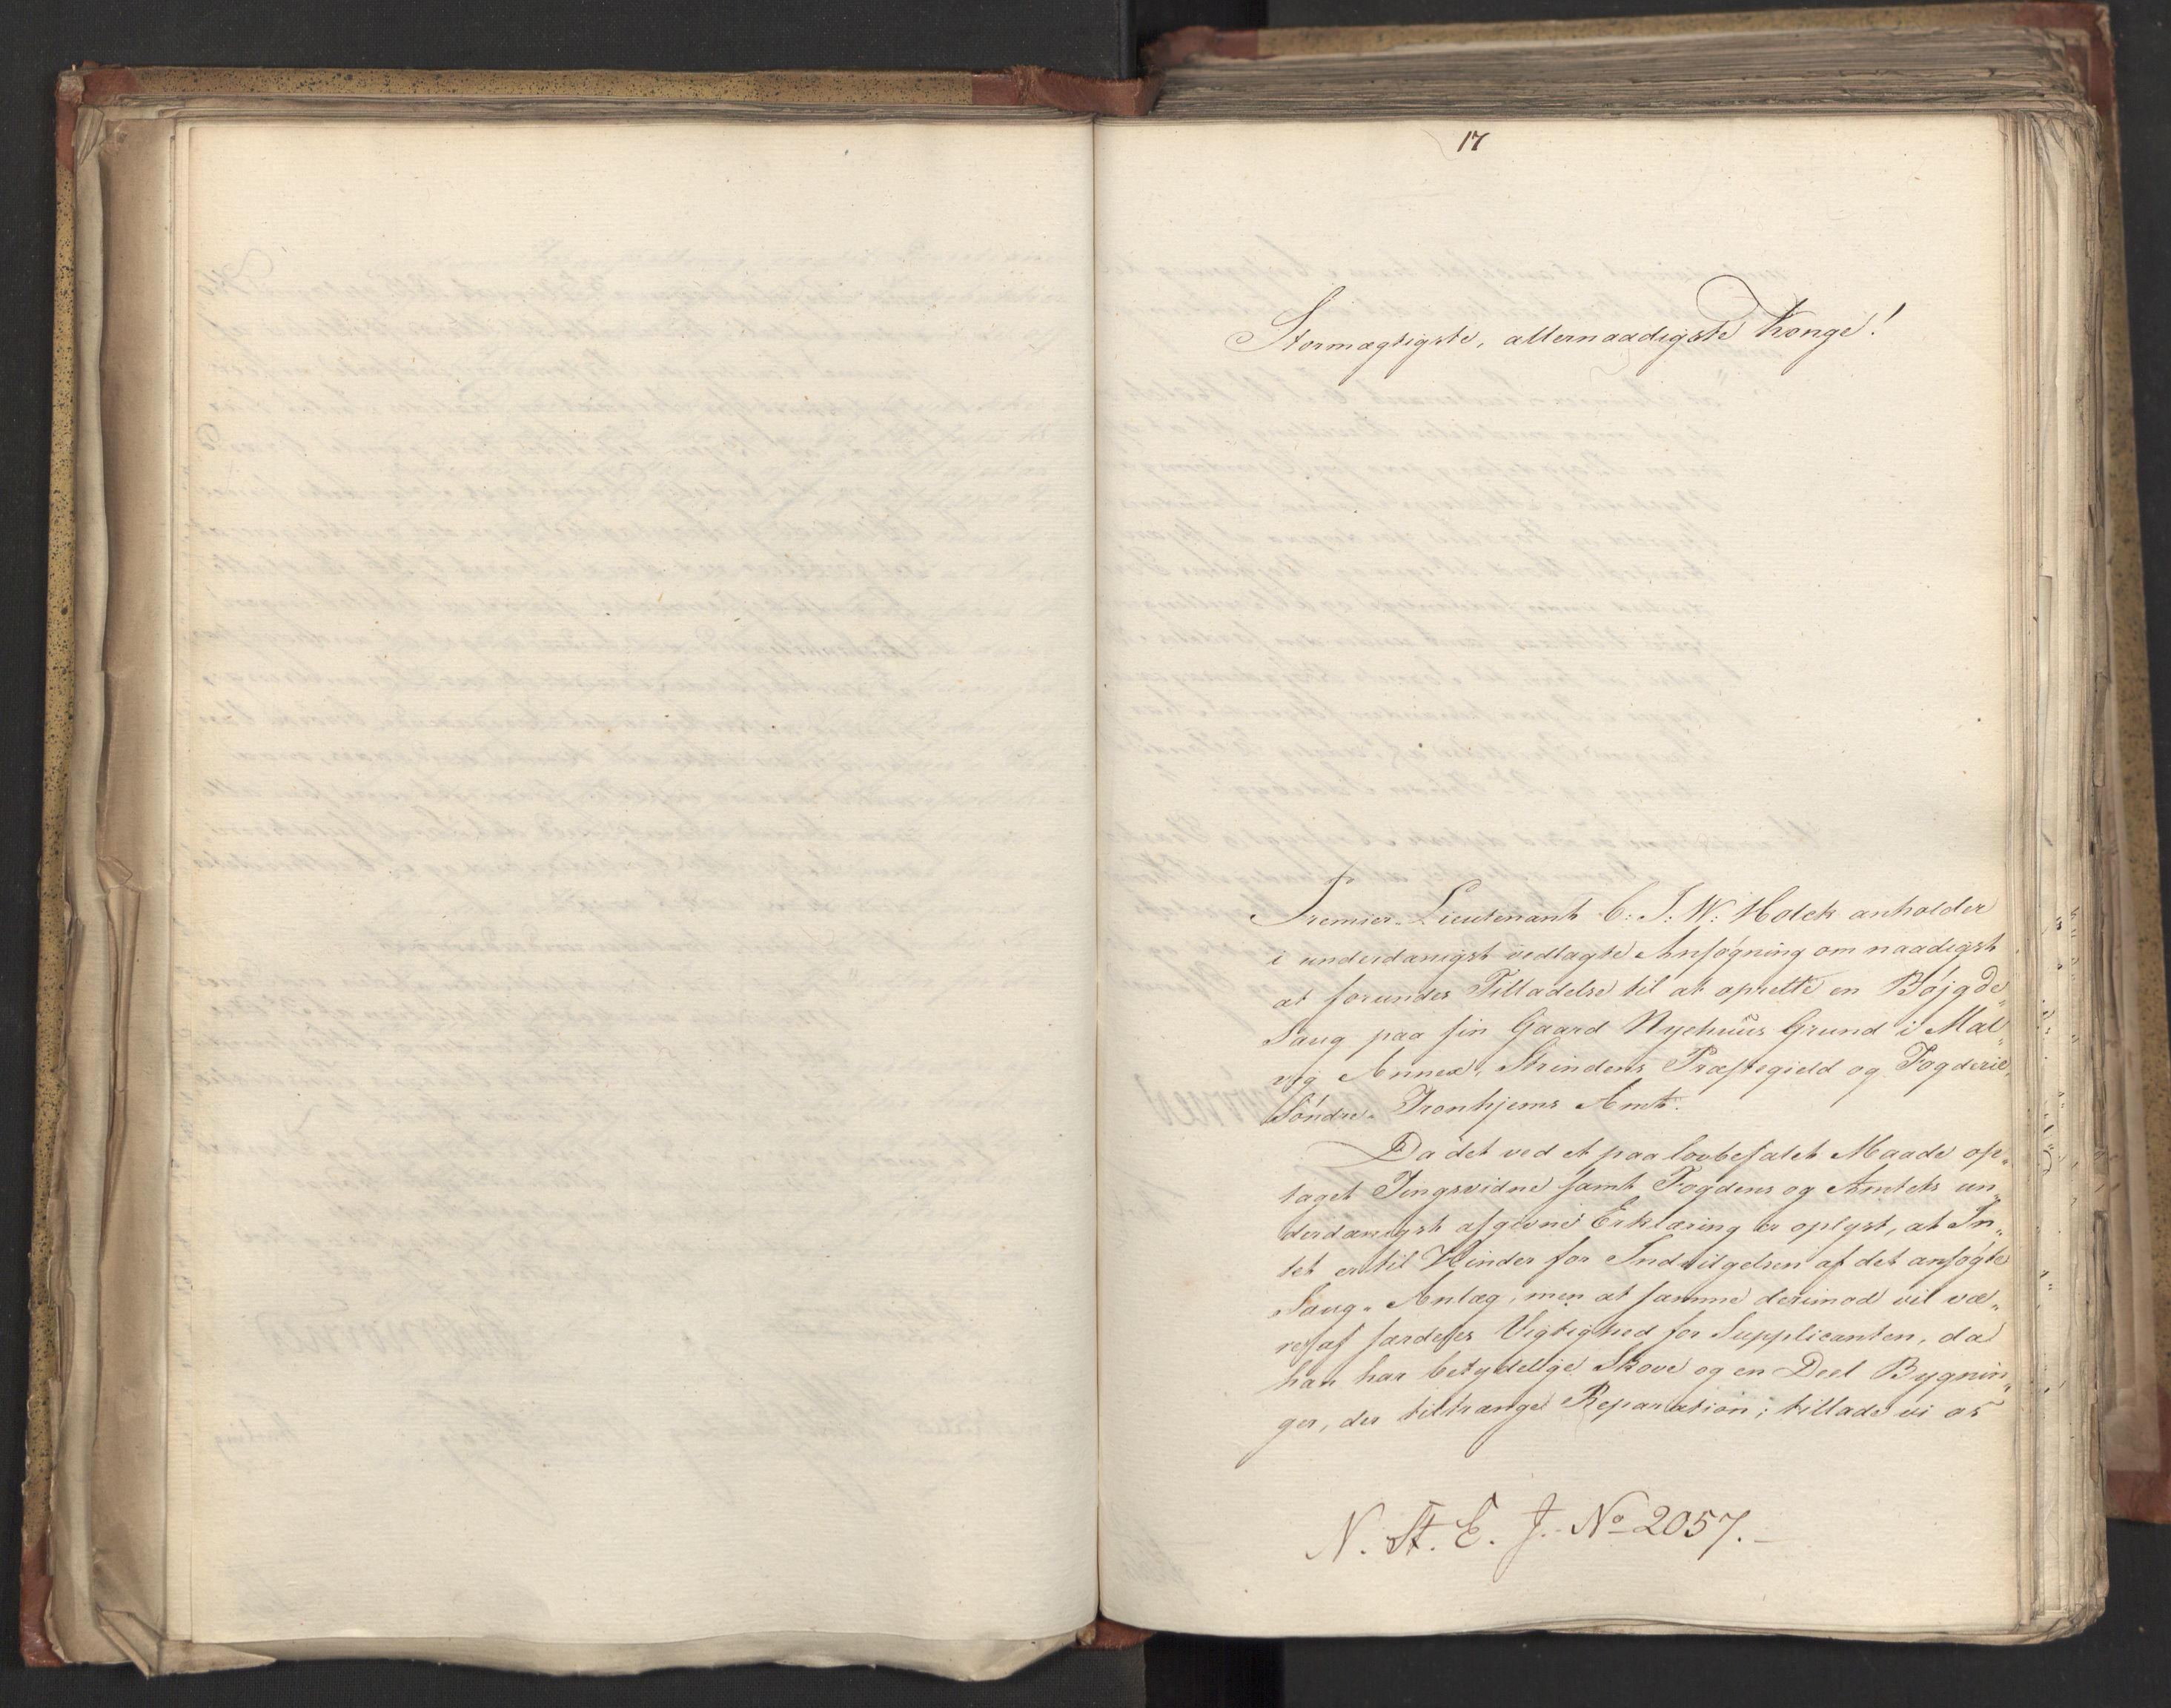 17
Stormægtigste, allernaadigste Konge!
Premier-Lieutenant C: J: W: Holck anholder
i underdanigst vedlagte Ansøgning om naadigst
at forundes Tilladelse til at oprette en Bøjgde„
Saug paa sin Gaard Nyehuus Grund i Mal„
vig Annex, Strindens Præstegield og Fogderie,
Søndre Tronhjems Amt.
Da det ved et paa lovbefalet Maade op„
taget Tingsvidne samt Fogdens og Amtets un„
derdanigst afgivne Erklæring er oplyst, at In„
tet er til Hinder for Indvilgelsen af det ansøgte
Saug-Anlæg, men at samme derimod vil væ„
re af særdeles Vigtighed for Supplicanten, da
han har betydelige Skove og en Deel Bygnin„
ger, der tiltrænge Reparation; tillade vi os
N. St. E. J. No 2057.